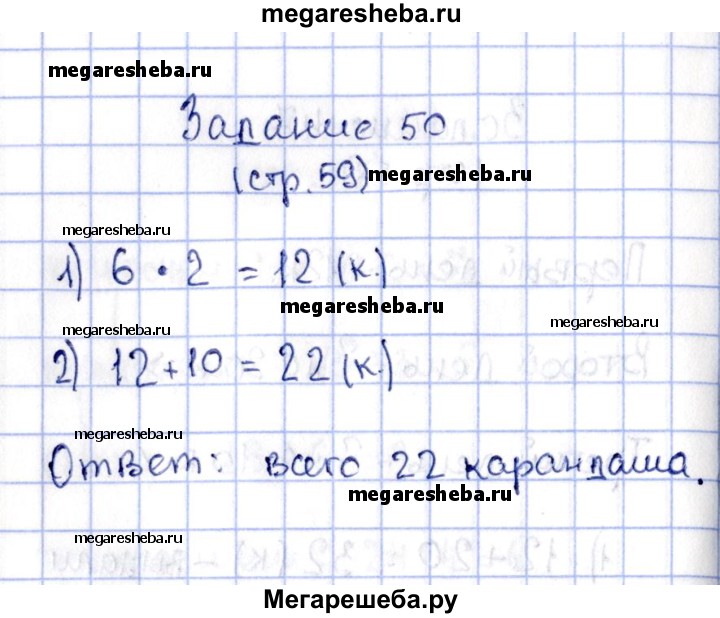 megaresheba.ru
megaresheba.ru
Задание 50
(стр. 59) megaresheba.ru
megaresheba.ru
1) 6 · 2 = 12 (к.)
megaresheba.ru
megaresheba.ru
megaresheba.ru
2) 12 + 10 = 22 (к.)
megaresheba.ru
Ответ: всего 22 карандаша.
megaresheba.ru
megaresheba.ru
Мегарешеба.ру